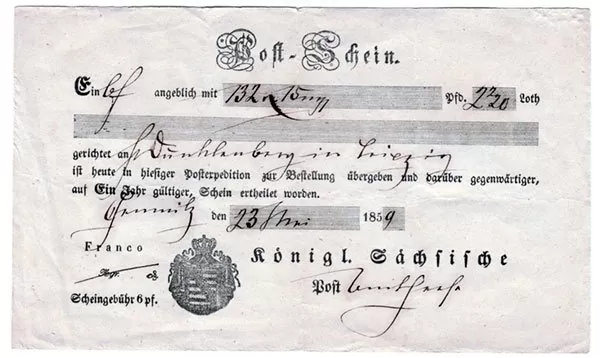 Post-Schein.
Ein angeblich mit 132 15 Pfd. 2 20 Loth
gerichtet an Duncklenberg in Leipzig
ist heute in hiesiger Posterpedition zur Bestellung übergeben und darüber gegenwärtiger,
auf Ein Jahr gültiger, Schein ertheilet worden.
Chemnitz den 23 Mai 1859
Franco Königl. Sächsische
Post
Scheingebühr 6 pf.